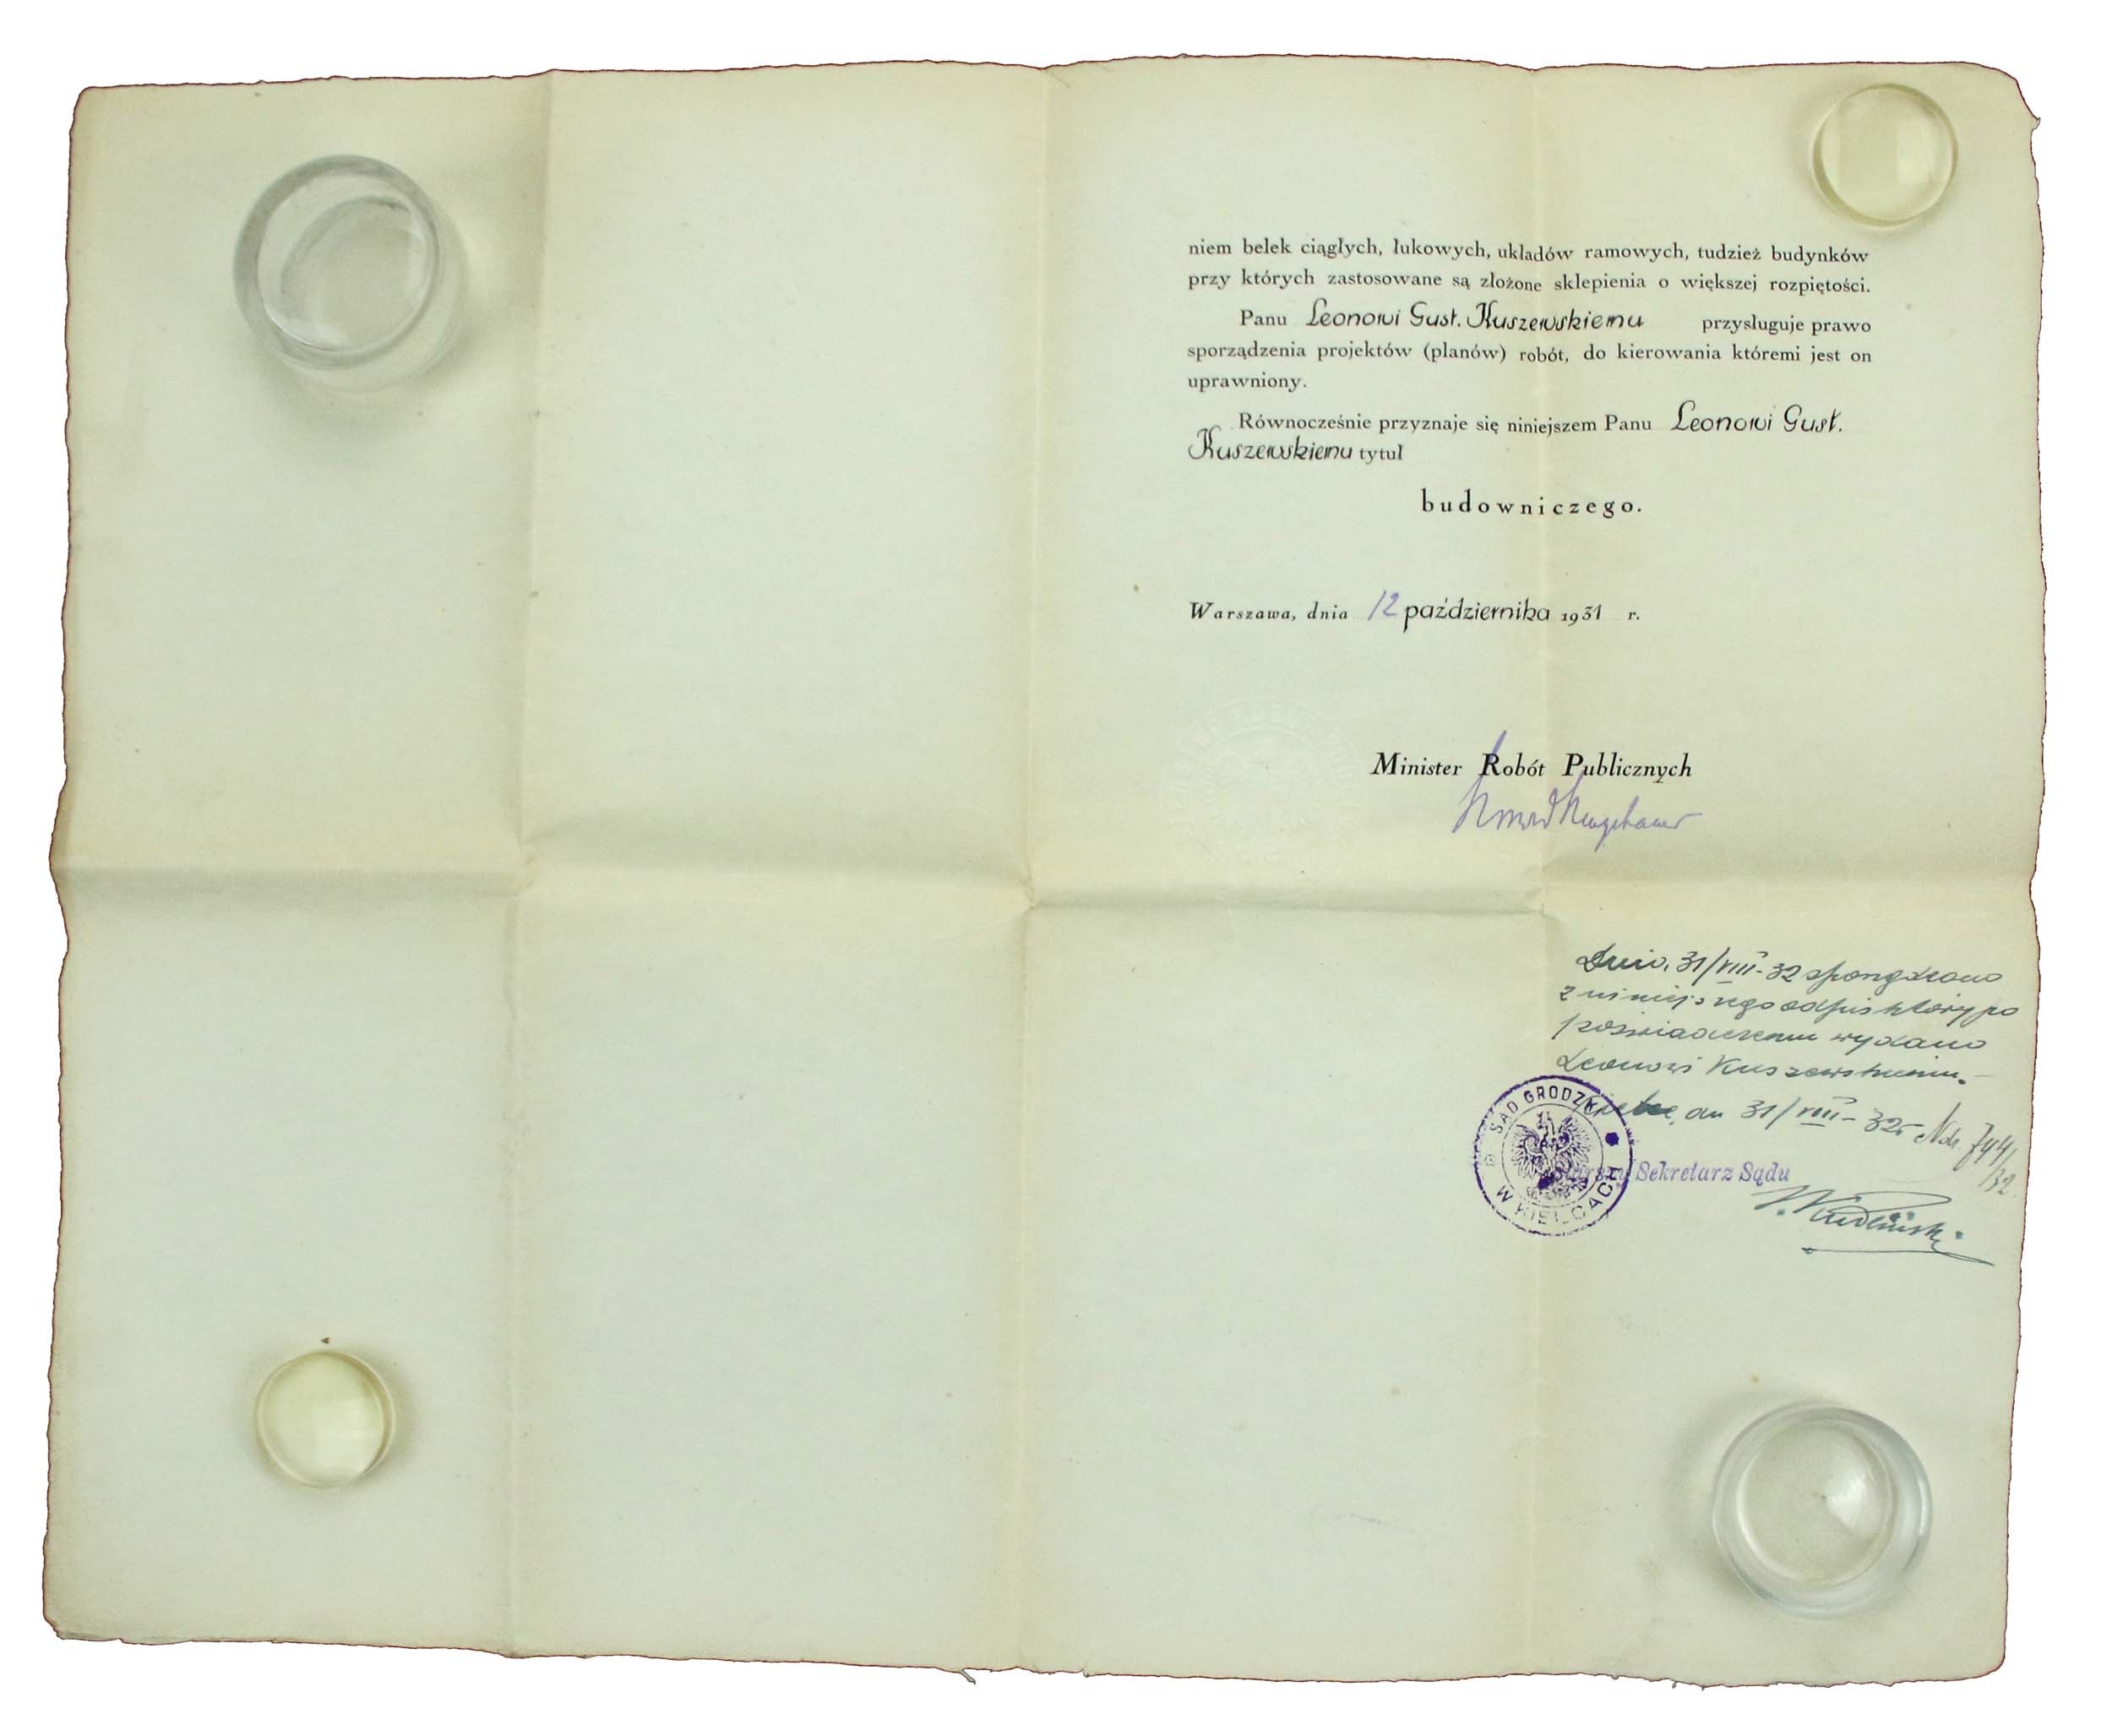 niem belek ciągłych, łukowych, układów ramowych, tudzież budynków
przy których zastosowane są złożone sklepienia o większej rozpiętości.
Panu Leonowi Gust. Kuszewskiemu przysługuje prawo
sporządzenia projektów (planów) robót, do kierowania któremi jest on
uprawniony.
Równocześnie przyznaje się niniejszem Panu Leonowi Gust.
Kuszewskiemu tytuł
budowniczego.
Warszawa, dnia 12 października 1931 r.
Minister Robót Publicznych
Dnia 31/VIII-32 sporządzono
z niniejszego odpis który po
poświadczeniu wydano
Leonowi Kuszewskiemu.
Kielce, dn 31/VIII-32 r. Ndr. 744/32
SĄD GRODZKI W KIELCACH
Sekretarz Sądu